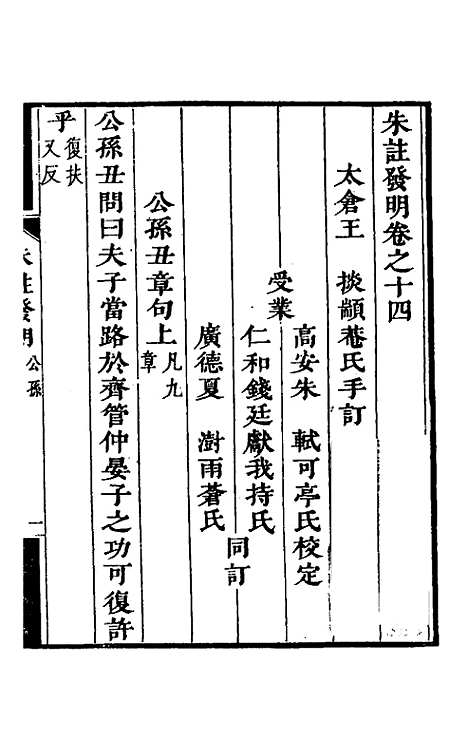 朱註發明卷之十四
太倉王　掞顓菴氏手訂
高安朱　軾可亭氏校定
受業
仁和錢廷獻我持氏
廣德夏　澍雨蒼氏
同訂
公孫丑章句上凡九章
公孫丑問曰夫子當路於齊管仲晏子之功可復許
乎復扶又反
朱註發明 公孫 一